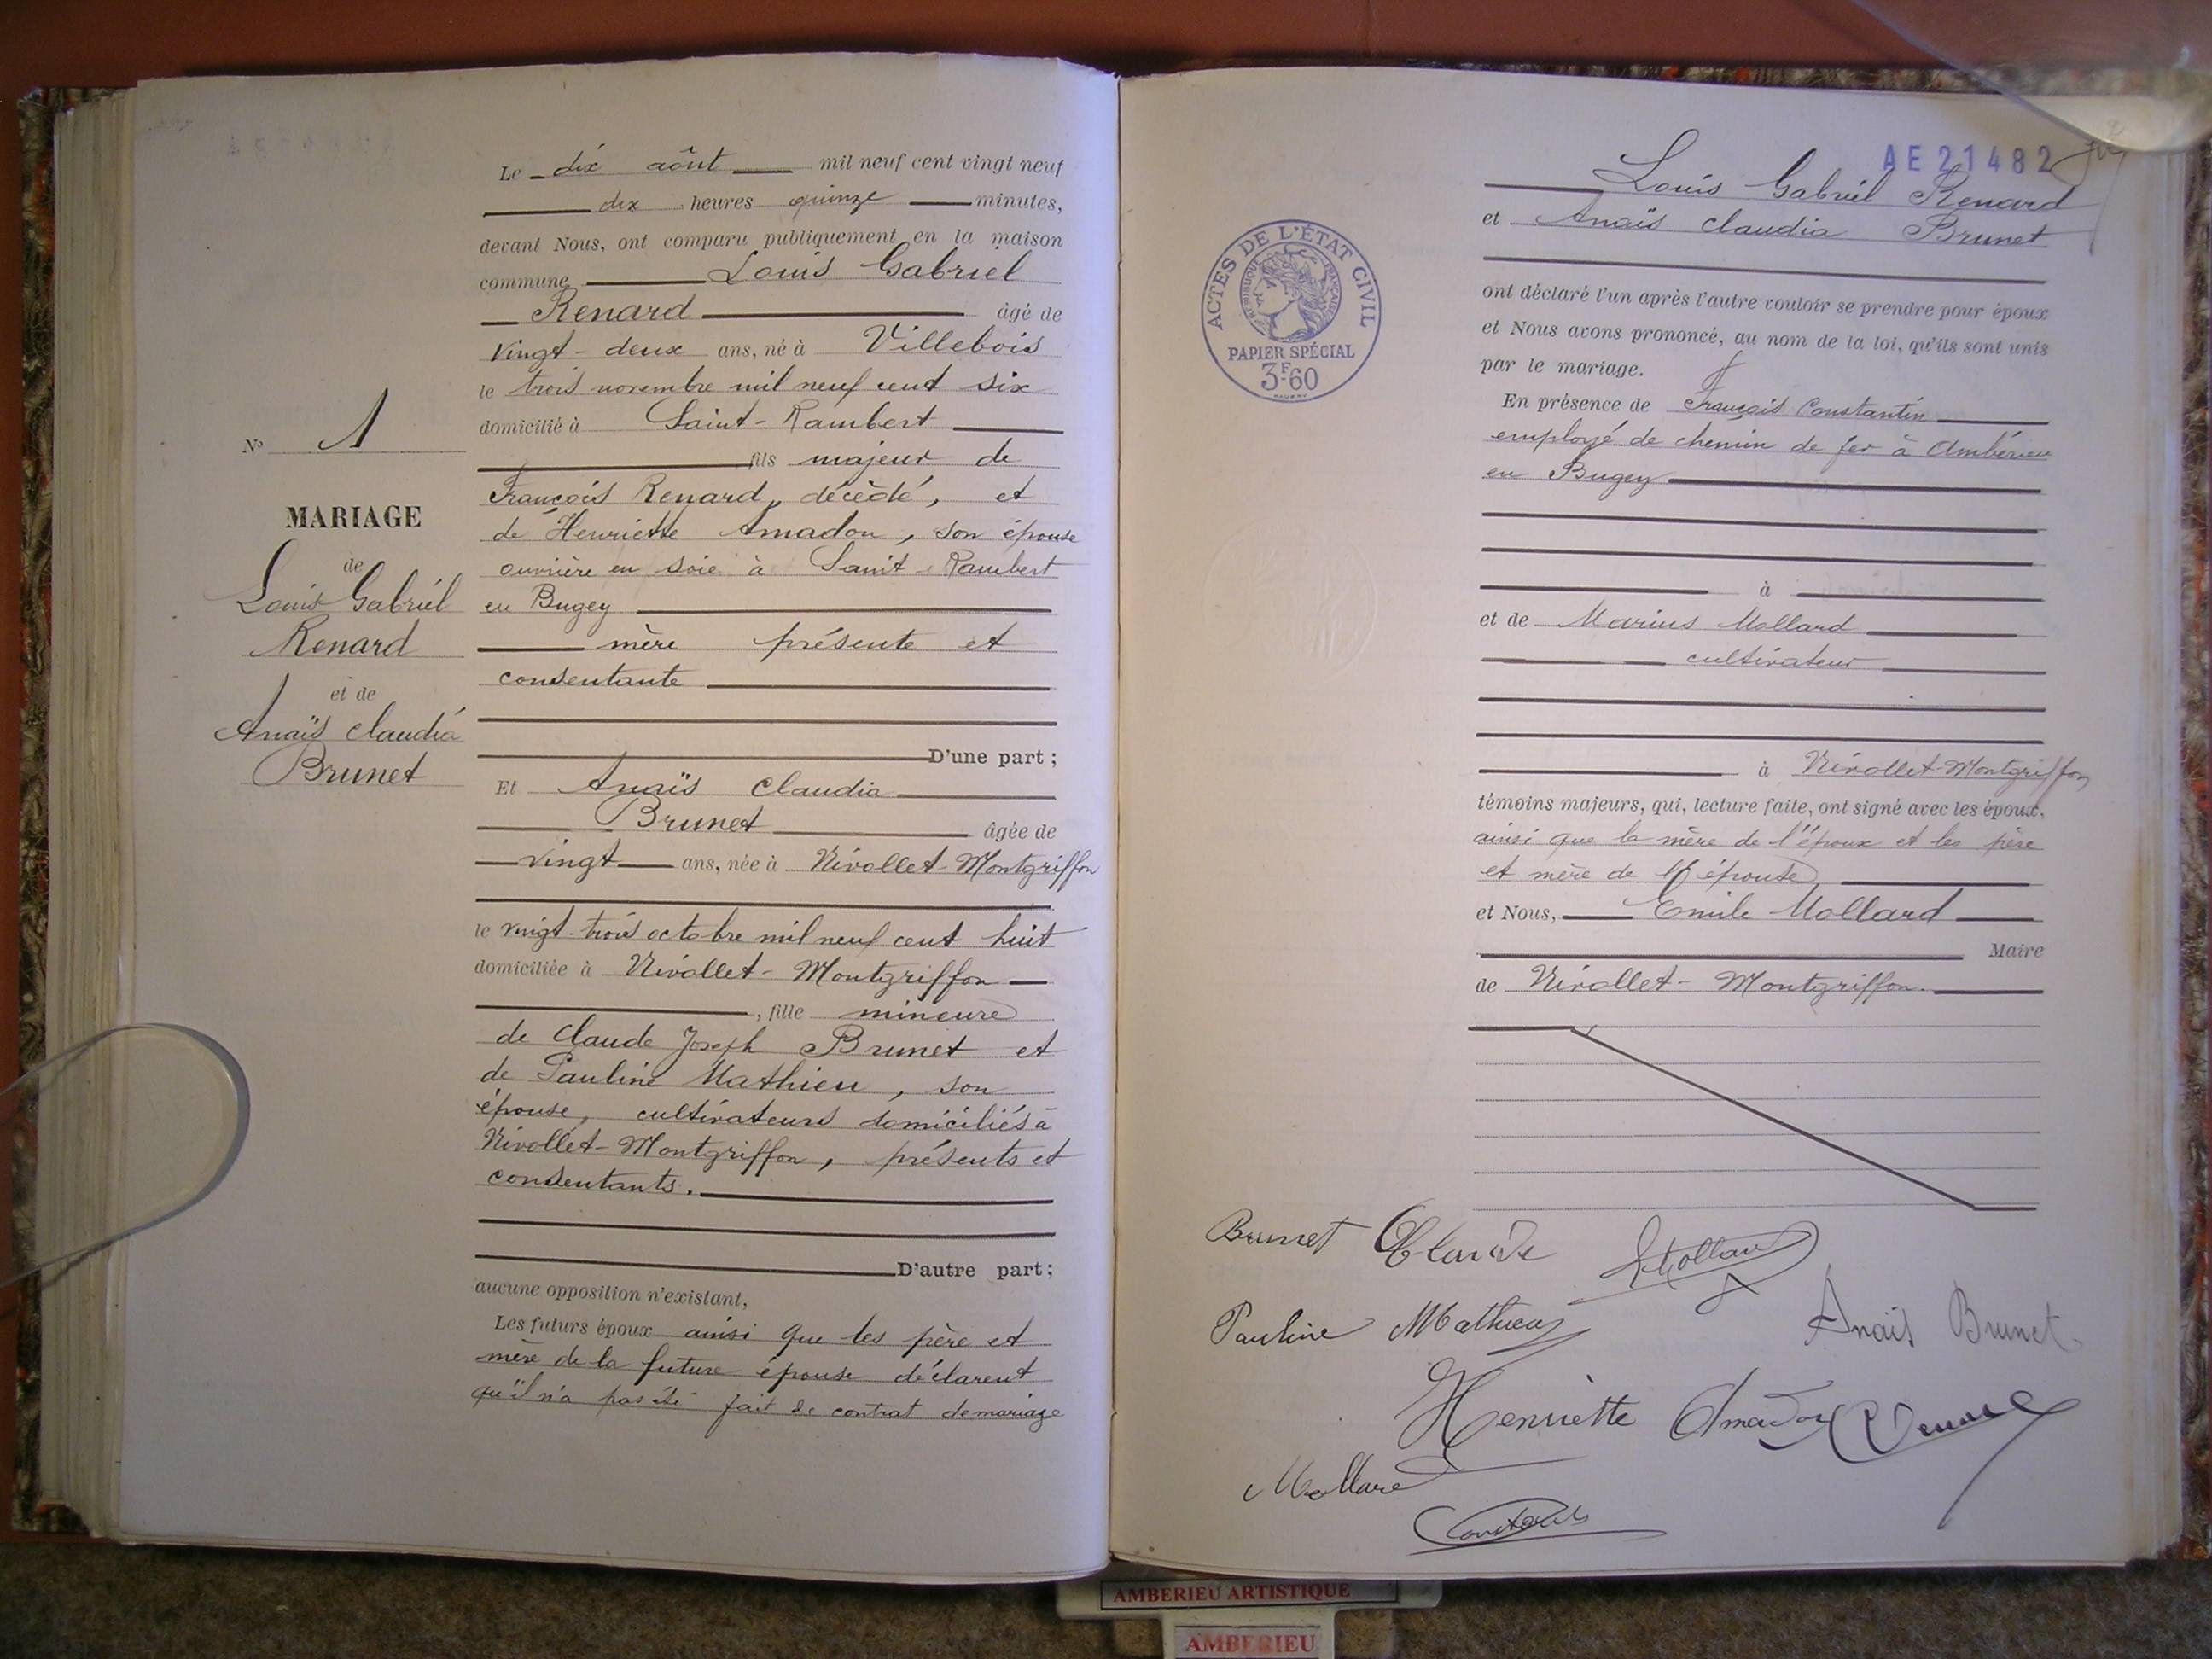 Le dix août mil neuf cent vingt neuf
dix heures quinze minutes,
devant Nous, ont comparu publiquement en la maison
commune Louis Gabriel
Renard âgé de
vingt-deux ans, né à Villebois
le trois novembre mil neuf cent six
domicilié à Saint-Rambert
fils majeur de
François Renard, décédé, et
de Henriette Amadon, son épouse
ouvrière en soie à Saint-Rambert
en Bugey
mère présente et
consentante
D'une part ;
Et Anaïs Claudia
Brunet âgée de
vingt ans, née à Nivollet-Montgriffon
le vingt-trois octobre mil neuf cent huit
domiciliée à Nivollet-Montgriffon
, fille mineure
de Claude Joseph Brunet et
de Pauline Mathieu, son
épouse, cultivateurs domiciliés à
Nivollet-Montgriffon, présents et
consentants.
D'autre part ;
aucune opposition n'existant,
Les futurs époux ainsi que les père et
mère de la future épouse déclarent
qu'il n'a pas été fait de contrat de mariage
N° 1
MARIAGE
de
Louis Gabriel
Renard
et de
Anaïs Claudia
Brunet
AE21482
Louis Gabriel Renard
et Anaïs Claudia Brunet
ont déclaré l'un après l'autre vouloir se prendre pour époux
et Nous avons prononcé, au nom de la loi, qu'ils sont unis
par le mariage.
En présence de François Constantin
employé de chemin de fer à Ambérieu
en Bugey
à
et de Marius Mollard
cultivateur
à Nivollet-Montgriffon
témoins majeurs, qui, lecture faite, ont signé avec les époux,
ainsi que la mère de l'époux et les père
et mère de l'épouse
et Nous, Emile Mollard
Maire
de Nivollet-Montgriffon.
ACTES DE L'ÉTAT CIVIL
RÉPUBLIQUE FRANÇAISE
PAPIER SPÉCIAL
3F60
Brunet Claude
Mollard
Pauline Mathieu
Anaïs Brunet
Henriette Amadon
Renard
Mollard
Constantin
AMBERIEU ARTISTIQUE
AMBERIEU